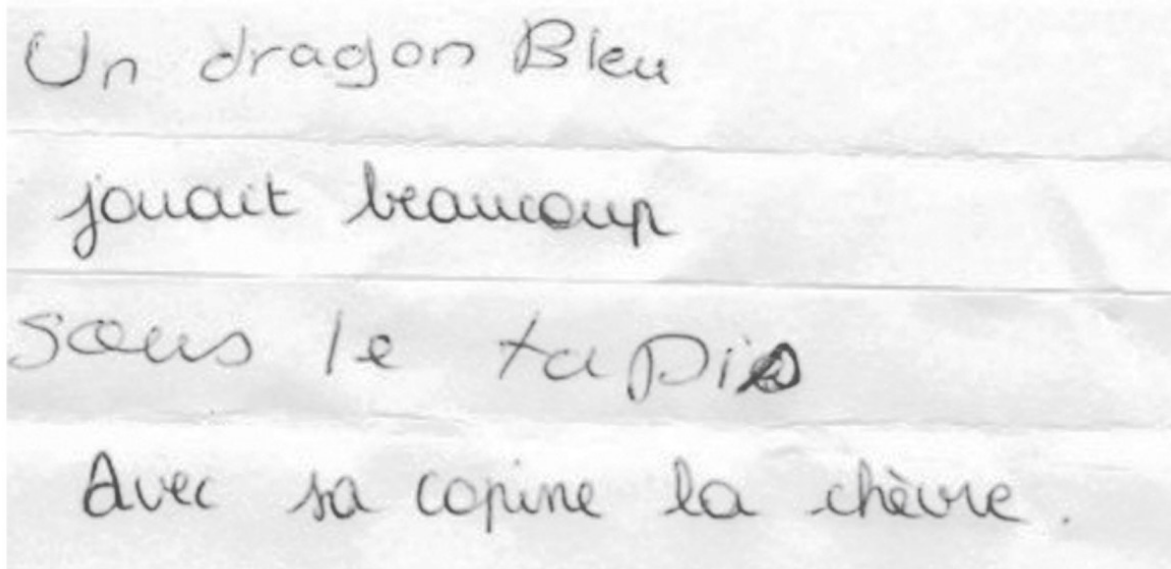 Un dragon Bleu
jouait beaucoup
sous le tapis
Avec sa copine la chèvre.